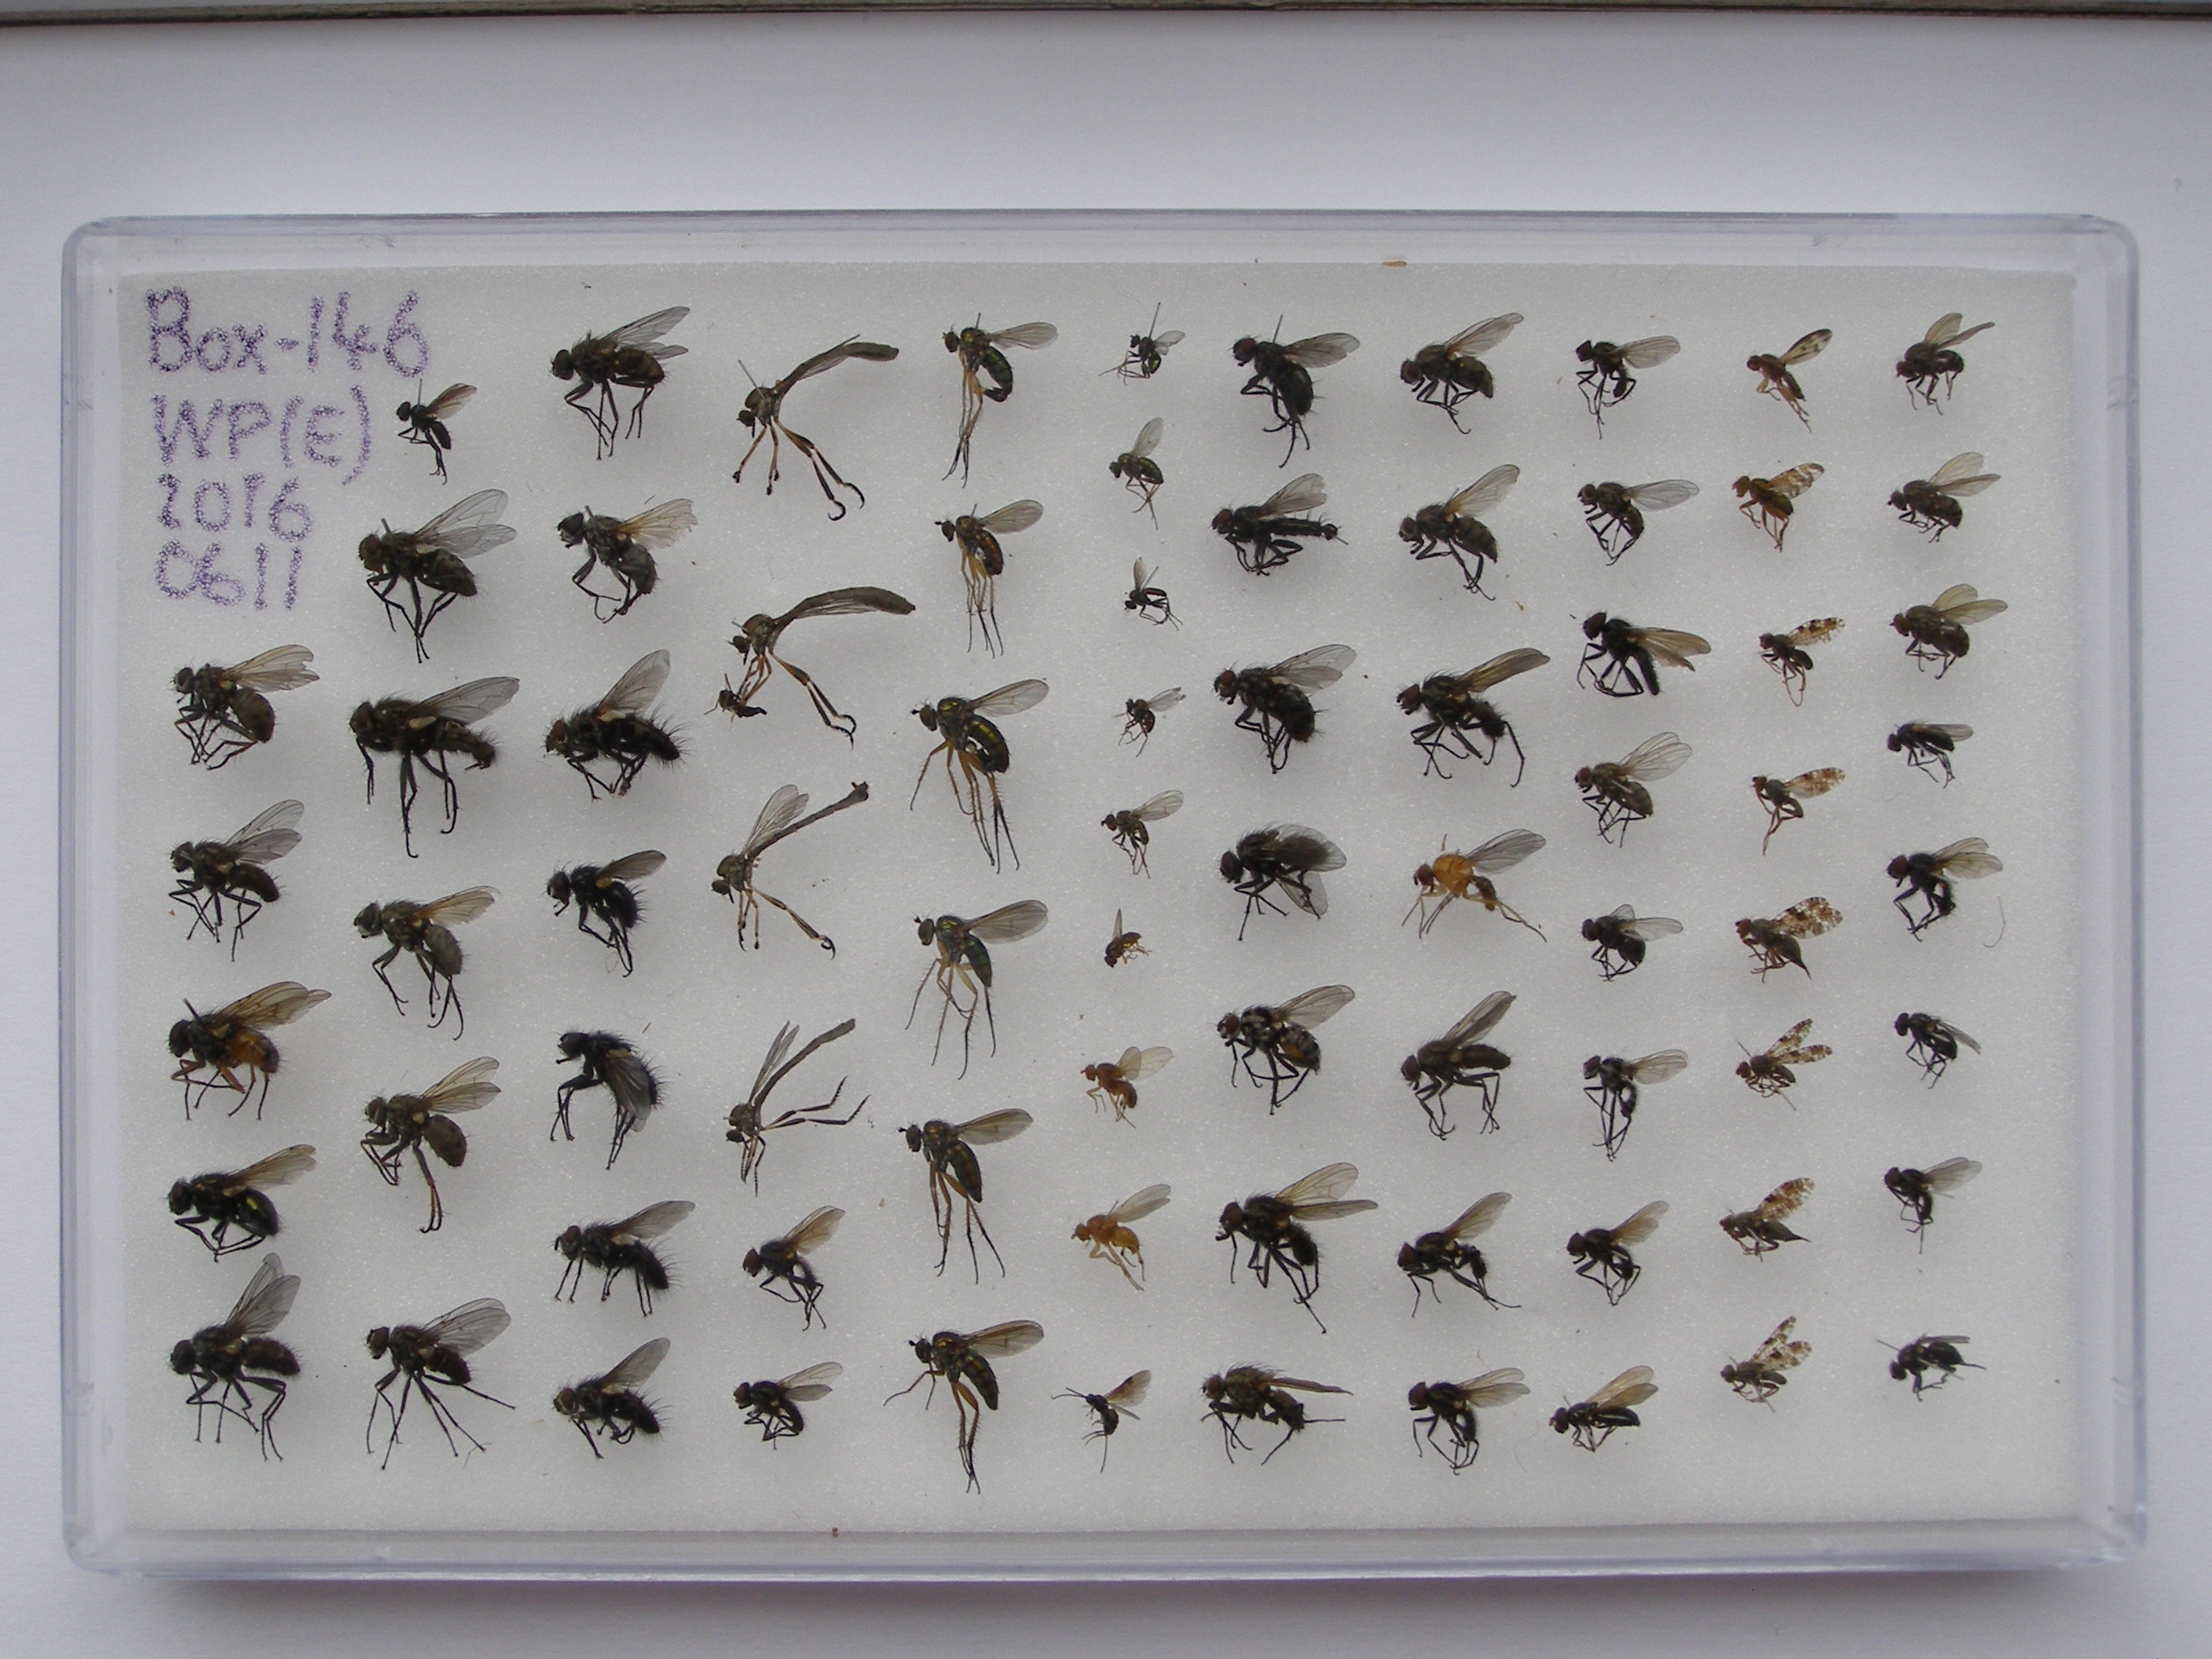 Box-146
WP(E)
2016
0611